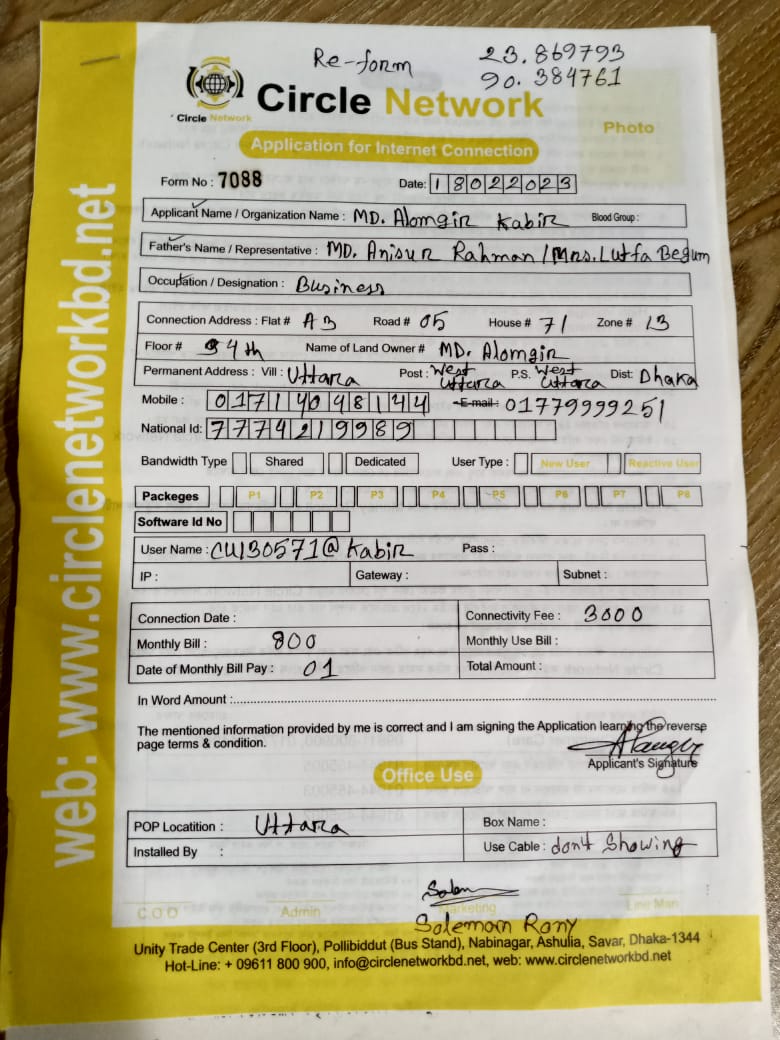 Re-form
23.869793
90.384761
Circle Network
Circle Network
Photo
Application for Internet Connection
Form No : 7088 Date: 18022023
Applicant Name / Organization Name : MD. Alomgir Kabir Blood Group :
Father's Name / Representative : MD. Anisur Rahman / Mrs. Lutfa Begum
Occupation / Designation : Business
Connection Address : Flat # A3 Road # 05 House # 71 Zone # 13
Floor # 4th Name of Land Owner # MD. Alomgir
Permanent Address : Vill : Uttara Post : West Uttara P.S. West Uttara Dist: Dhaka
Mobile : 01714048144 E-mail : 01779999251
National Id: 7774219989
Bandwidth Type Shared Dedicated User Type : New User Reactive User
Packeges P1 P2 P3 P4 P5 P6 P7 P8
Software Id No
User Name : CU130571@Kabir Pass :
IP : Gateway : Subnet :
Connection Date : Connectivity Fee : 3000
Monthly Bill : 800 Monthly Use Bill :
Date of Monthly Bill Pay : 01 Total Amount :
In Word Amount :
The mentioned information provided by me is correct and I am signing the Application learning the reverse
page terms & condition.
Applicant's Signature
Office Use
POP Locatition : Uttara Box Name :
Installed By : Use Cable : don't Showing
C.O.O Admin Marketing Line Man
Soleman Rony
Unity Trade Center (3rd Floor), Pollibiddut (Bus Stand), Nabinagar, Ashulia, Savar, Dhaka-1344
Hot-Line: + 09611 800 900, info@circlenetworkbd.net, web: www.circlenetworkbd.net
web: www.circlenetworkbd.net